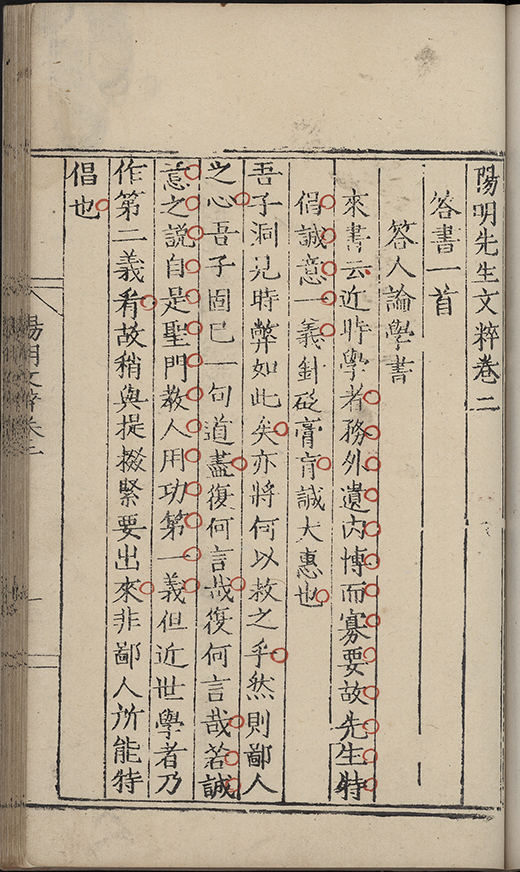 陽明先生文粹卷二
答書一首
答人論學書
來書云近時學者務外遺內博而寡要故先生特
倡誠意一義針砭膏肓誠大惠也
吾子洞見時弊如此矣亦將何以救之乎然則鄙人
之心吾子固已一句道盡復何言哉復何言哉若誠
意之說自是聖門教人用功第一義但近世學者乃
作第二義看故稍與提掇緊要出來非鄙人所能特
倡也
陽明文粹卷二